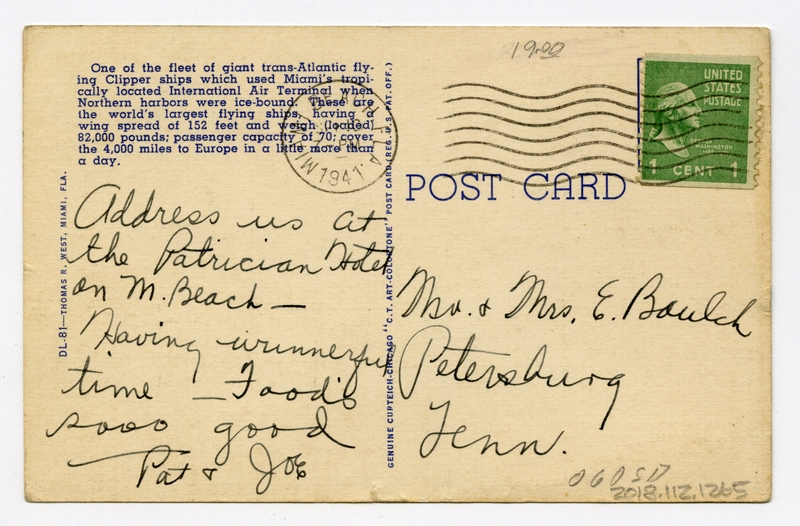 19.00
One of the fleet of giant trans-Atlantic fly-
ing Clipper ships which used Miami's tropi-
cally located Internationl Air Terminal when
Northern harbors were ice-bound. These are
the world's largest flying ships, having a
wing spread of 152 feet and weigh (loaded)
82,000 pounds; passenger capacity of 70; cover
the 4,000 miles to Europe in a little more than
a day.
MIAMI
1941
UNITED
STATES
POSTAGE
WASHINGTON
1 CENT 1
POST CARD
DL-81—THOMAS R. WEST, MIAMI, FLA.
GENUINE CURTEICH-CHICAGO "C.T. ART-COLORTONE" POST CARD (REG. U. S. PAT. OFF.)
Address us at
the Patrician Hotel
on M. Beach —
Having wunnerful
time — Food's
sooo good
Pat & Joe
Mr. & Mrs. E. Boulch
Petersburg
Tenn.
060SD
2018.112.1265